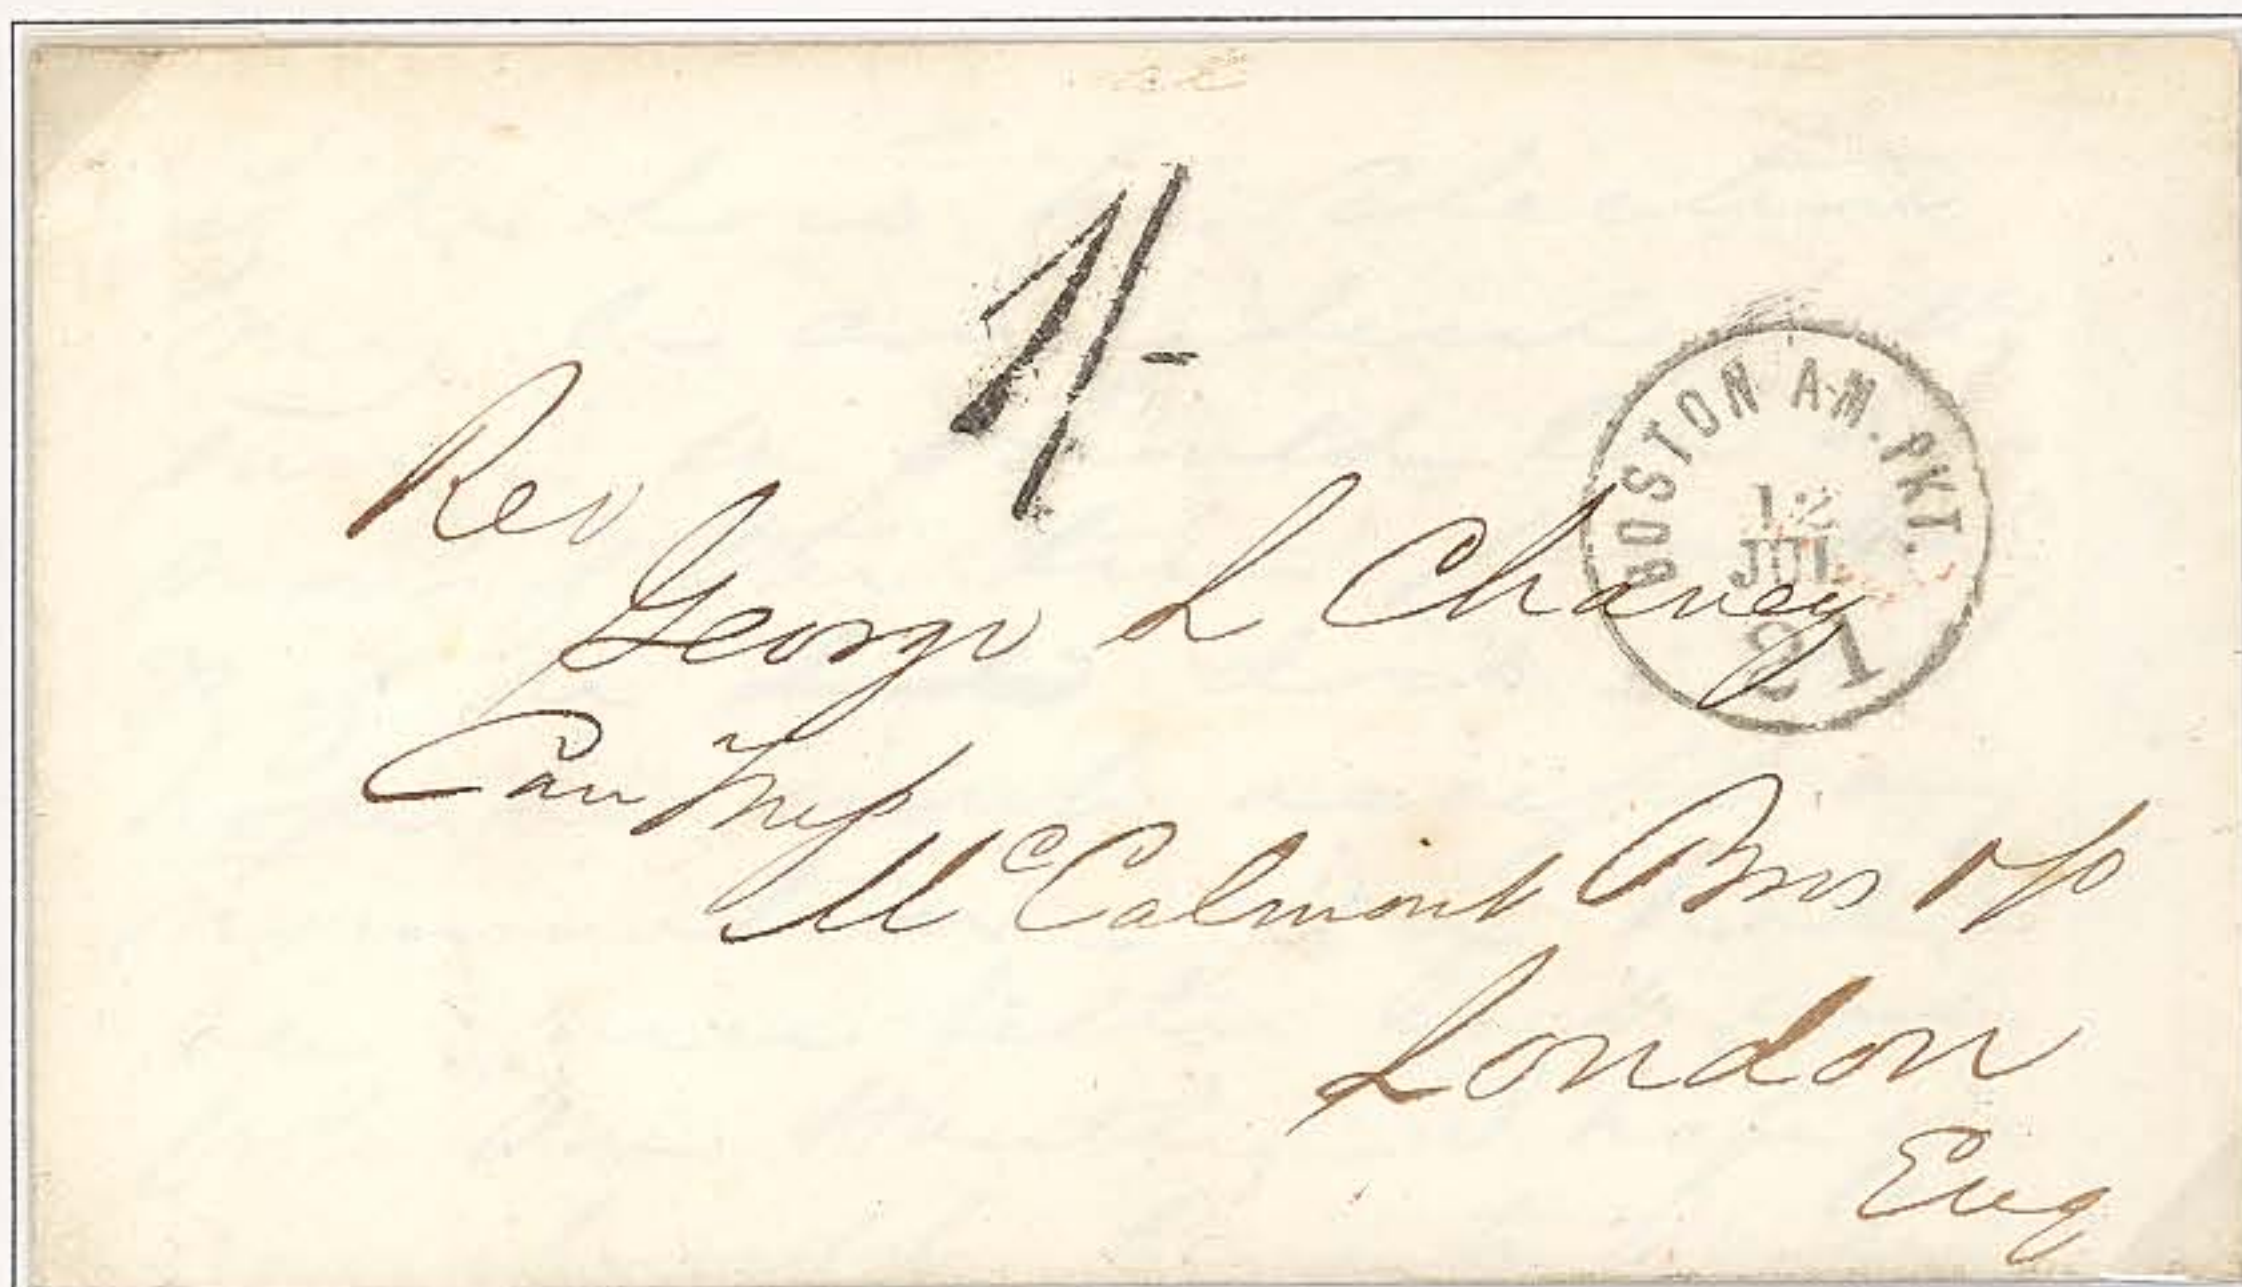 1/-
BOSTON AM. PKT.
12
JUL
21
Rev
George L Chaney
Care Mess
McCalmont Bros & Co
London
Eng